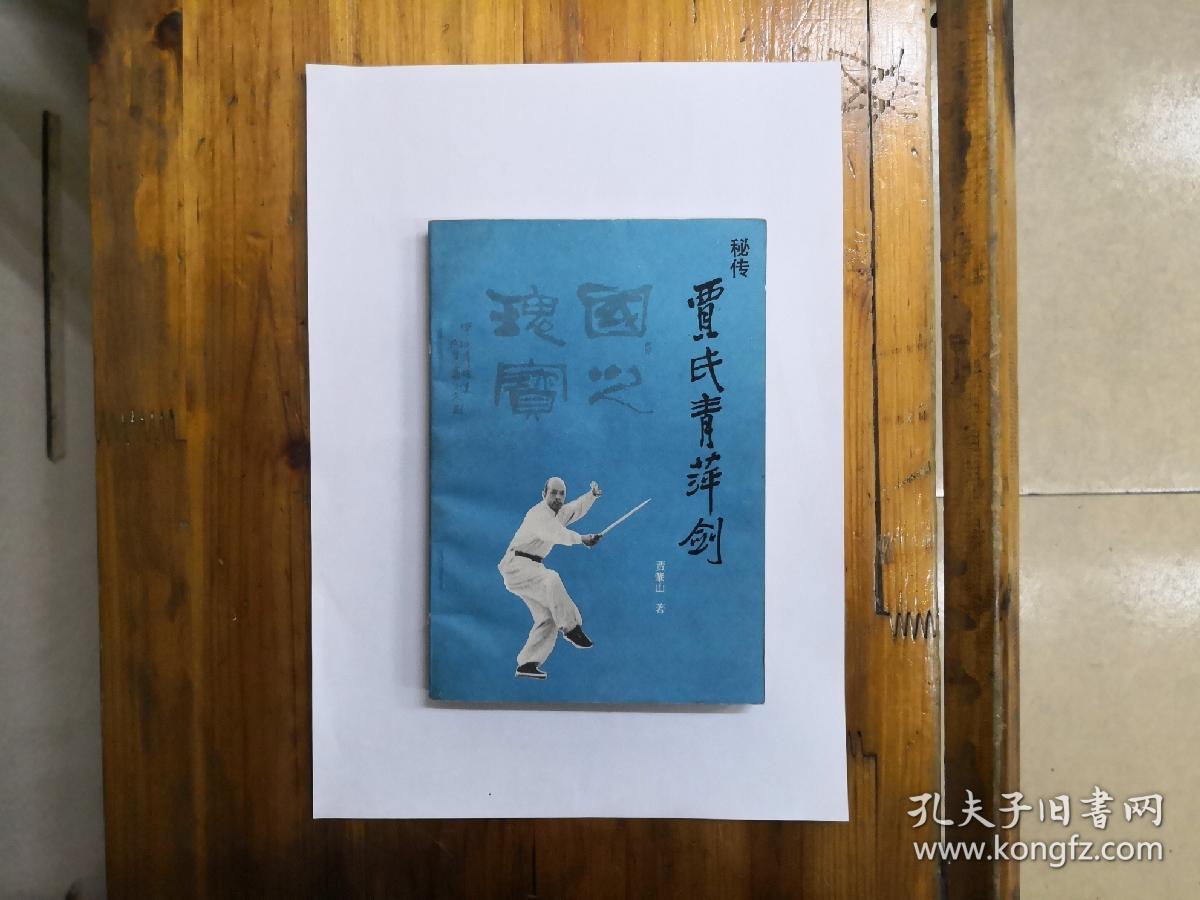 秘传
賈氏青萍剑
國之
瑰寶
贾肇山 著
孔夫子旧书网
www.kongfz.com